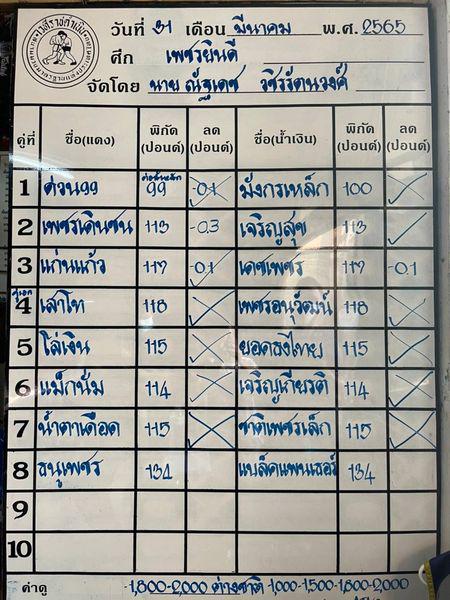 วันที่ 31 เดือน มีนาคม พ.ศ. 2565
ศึก เพชรยินดี
จัดโดย นาย ณัฐเดช วชิรรัตนวงศ์
คู่ที่ ชื่อ(แดง) พิกัด (ปอนด์) ลด (ปอนด์) ชื่อ(น้ำเงิน) พิกัด (ปอนด์) ลด (ปอนด์)
1 ด่วน99 99 -0.1 มังกรเหล็ก 100
2 เพชรเดินชน 113 -0.3 เจริญสุข 113
3 แก่นแก้ว 117 -0.1 เดชเพชร 117 -0.1
คู่เอก
4 เลาโท 118 เพชรอนุวัฒน์ 118
5 โล่เงิน 115 ยอดธงไทย 115
6 แม็กนั่ม 114 เจริญเกียรติ 114
7 น้ำตาเดือด 115 ชาติเพชรเล็ก 115
8 ธนูเพชร 134 แบล็คแพนเธอร์ 134
9
10
ค่าดู -1,800-2,000 ต่างชาติ -1,000-1,500-1,800-2,000